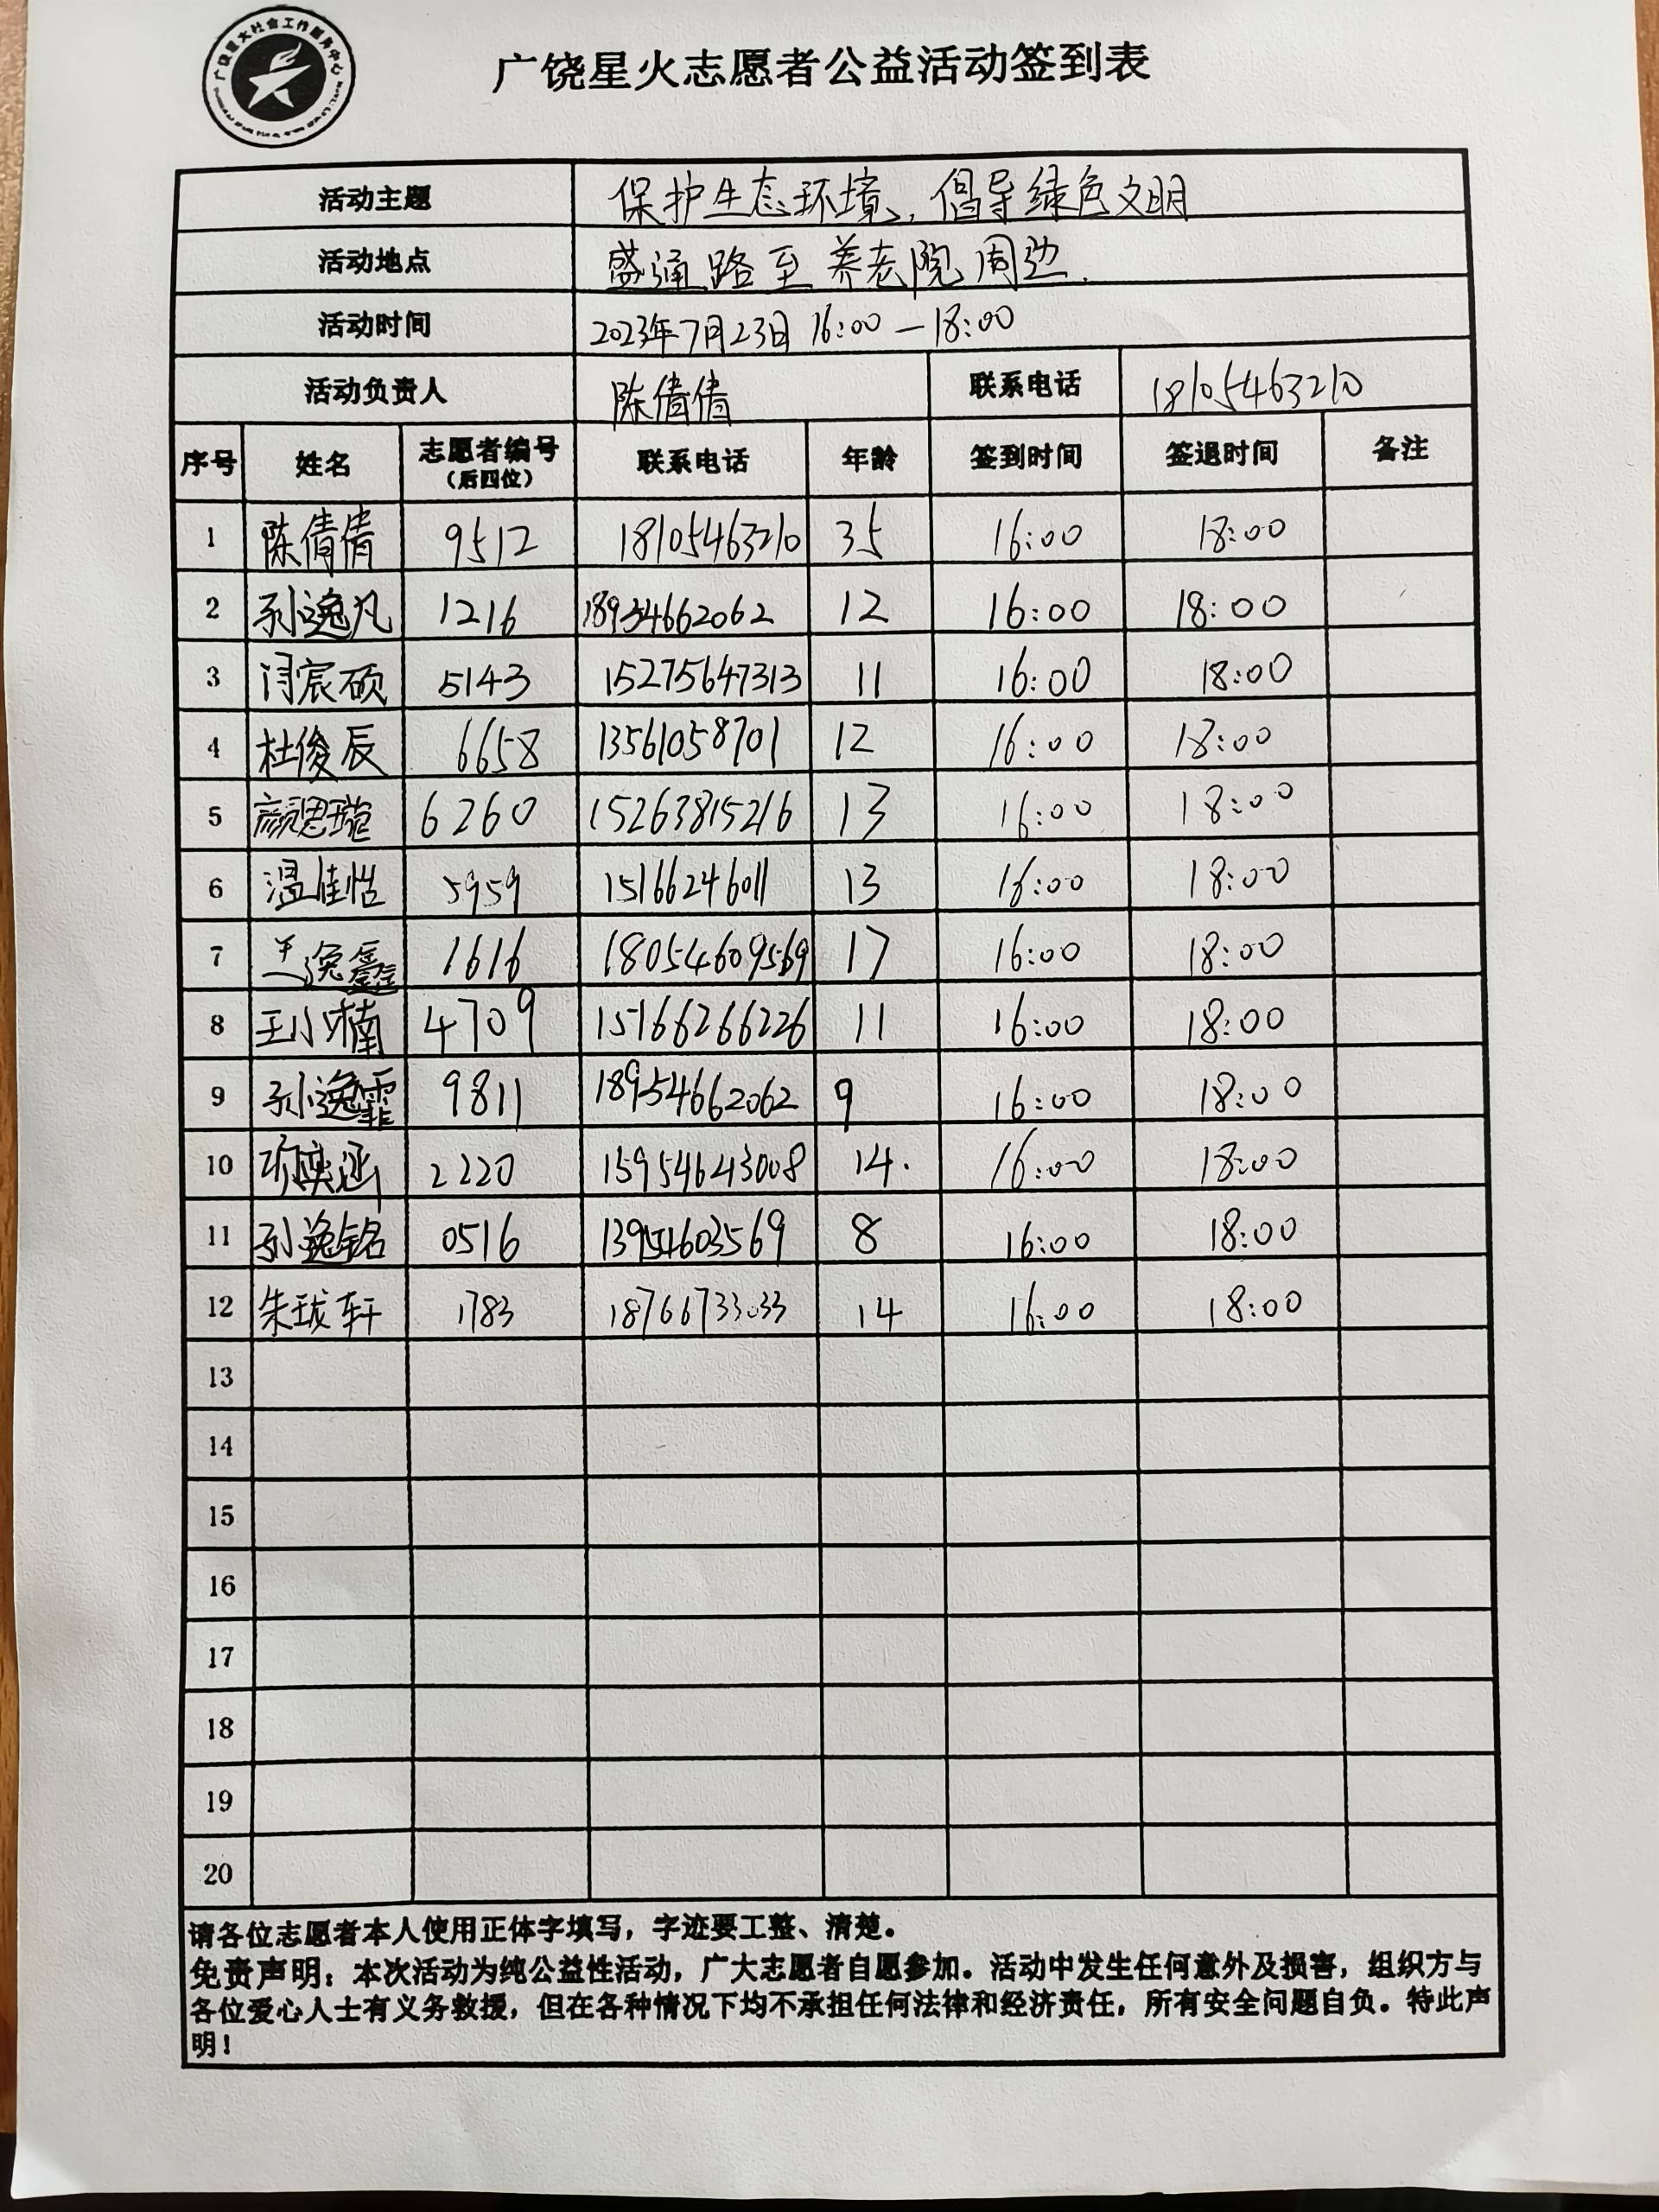 广饶星火社会工作服务中心
广饶星火志愿者公益活动签到表
活动主题 保护生态环境，倡导绿色文明
活动地点 盛通路至养老院周边.
活动时间 2023年7月23日 16:00—18:00
活动负责人 陈倩倩 联系电话 18105463210
序号 姓名 志愿者编号（后四位） 联系电话 年龄 签到时间 签退时间 备注
1 陈倩倩 9512 18105463210 35 16:00 18:00
2 孙逸凡 1216 18954662062 12 16:00 18:00
3 闫宸硕 5143 15275647313 11 16:00 18:00
4 杜俊辰 6658 13561058701 12 16:00 18:00
5 颜思璇 6260 15263815216 13 16:00 18:00
6 温佳怡 5959 15166246011 13 16:00 18:00
7 逸鑫 1616 18054609569 17 16:00 18:00
8 王小楠 4709 15166266226 11 16:00 18:00
9 孙逸霏 9811 18954662062 9 16:00 18:00
10 涵 2220 15954643008 14. 16:00 18:00
11 孙逸铭 0516 13954603569 8 16:00 18:00
12 朱珑轩 1783 18766733033 14 16:00 18:00
13
14
15
16
17
18
19
20
请各位志愿者本人使用正体字填写，字迹要工整、清楚。
免责声明：本次活动为纯公益性活动，广大志愿者自愿参加。活动中发生任何意外及损害，组织方与
各位爱心人士有义务救援，但在各种情况下均不承担任何法律和经济责任，所有安全问题自负。特此声
明！